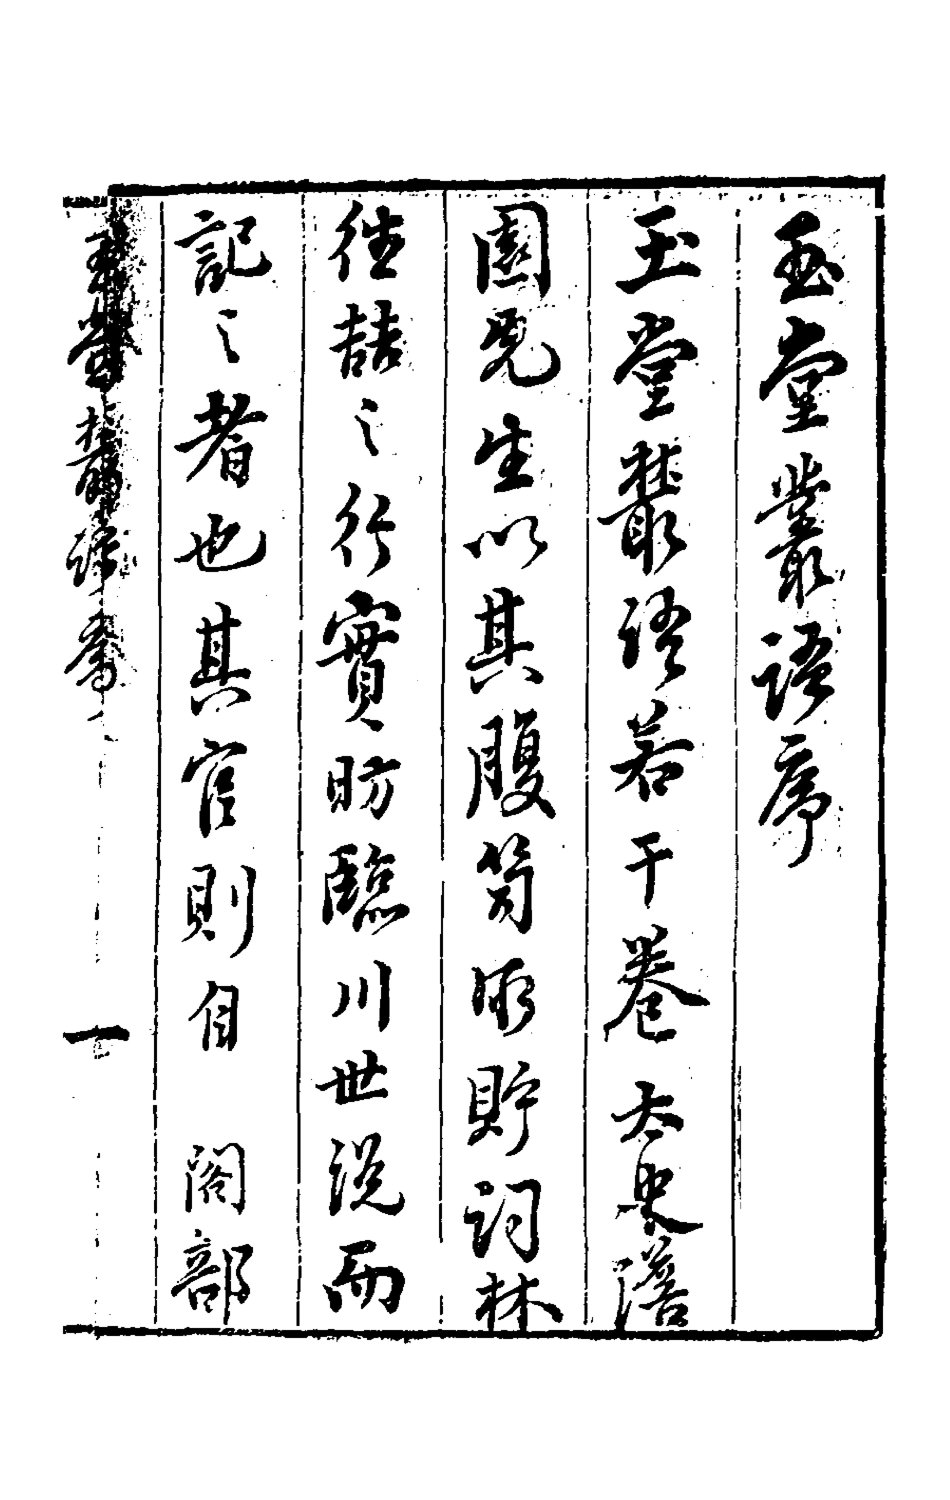 玉堂叢語序
玉堂叢語若干卷太史澹
園先生以其腹笥所貯詞林
往喆之行實昉臨川世說而
記之者也其官則自 閣部
玉堂叢語序
一